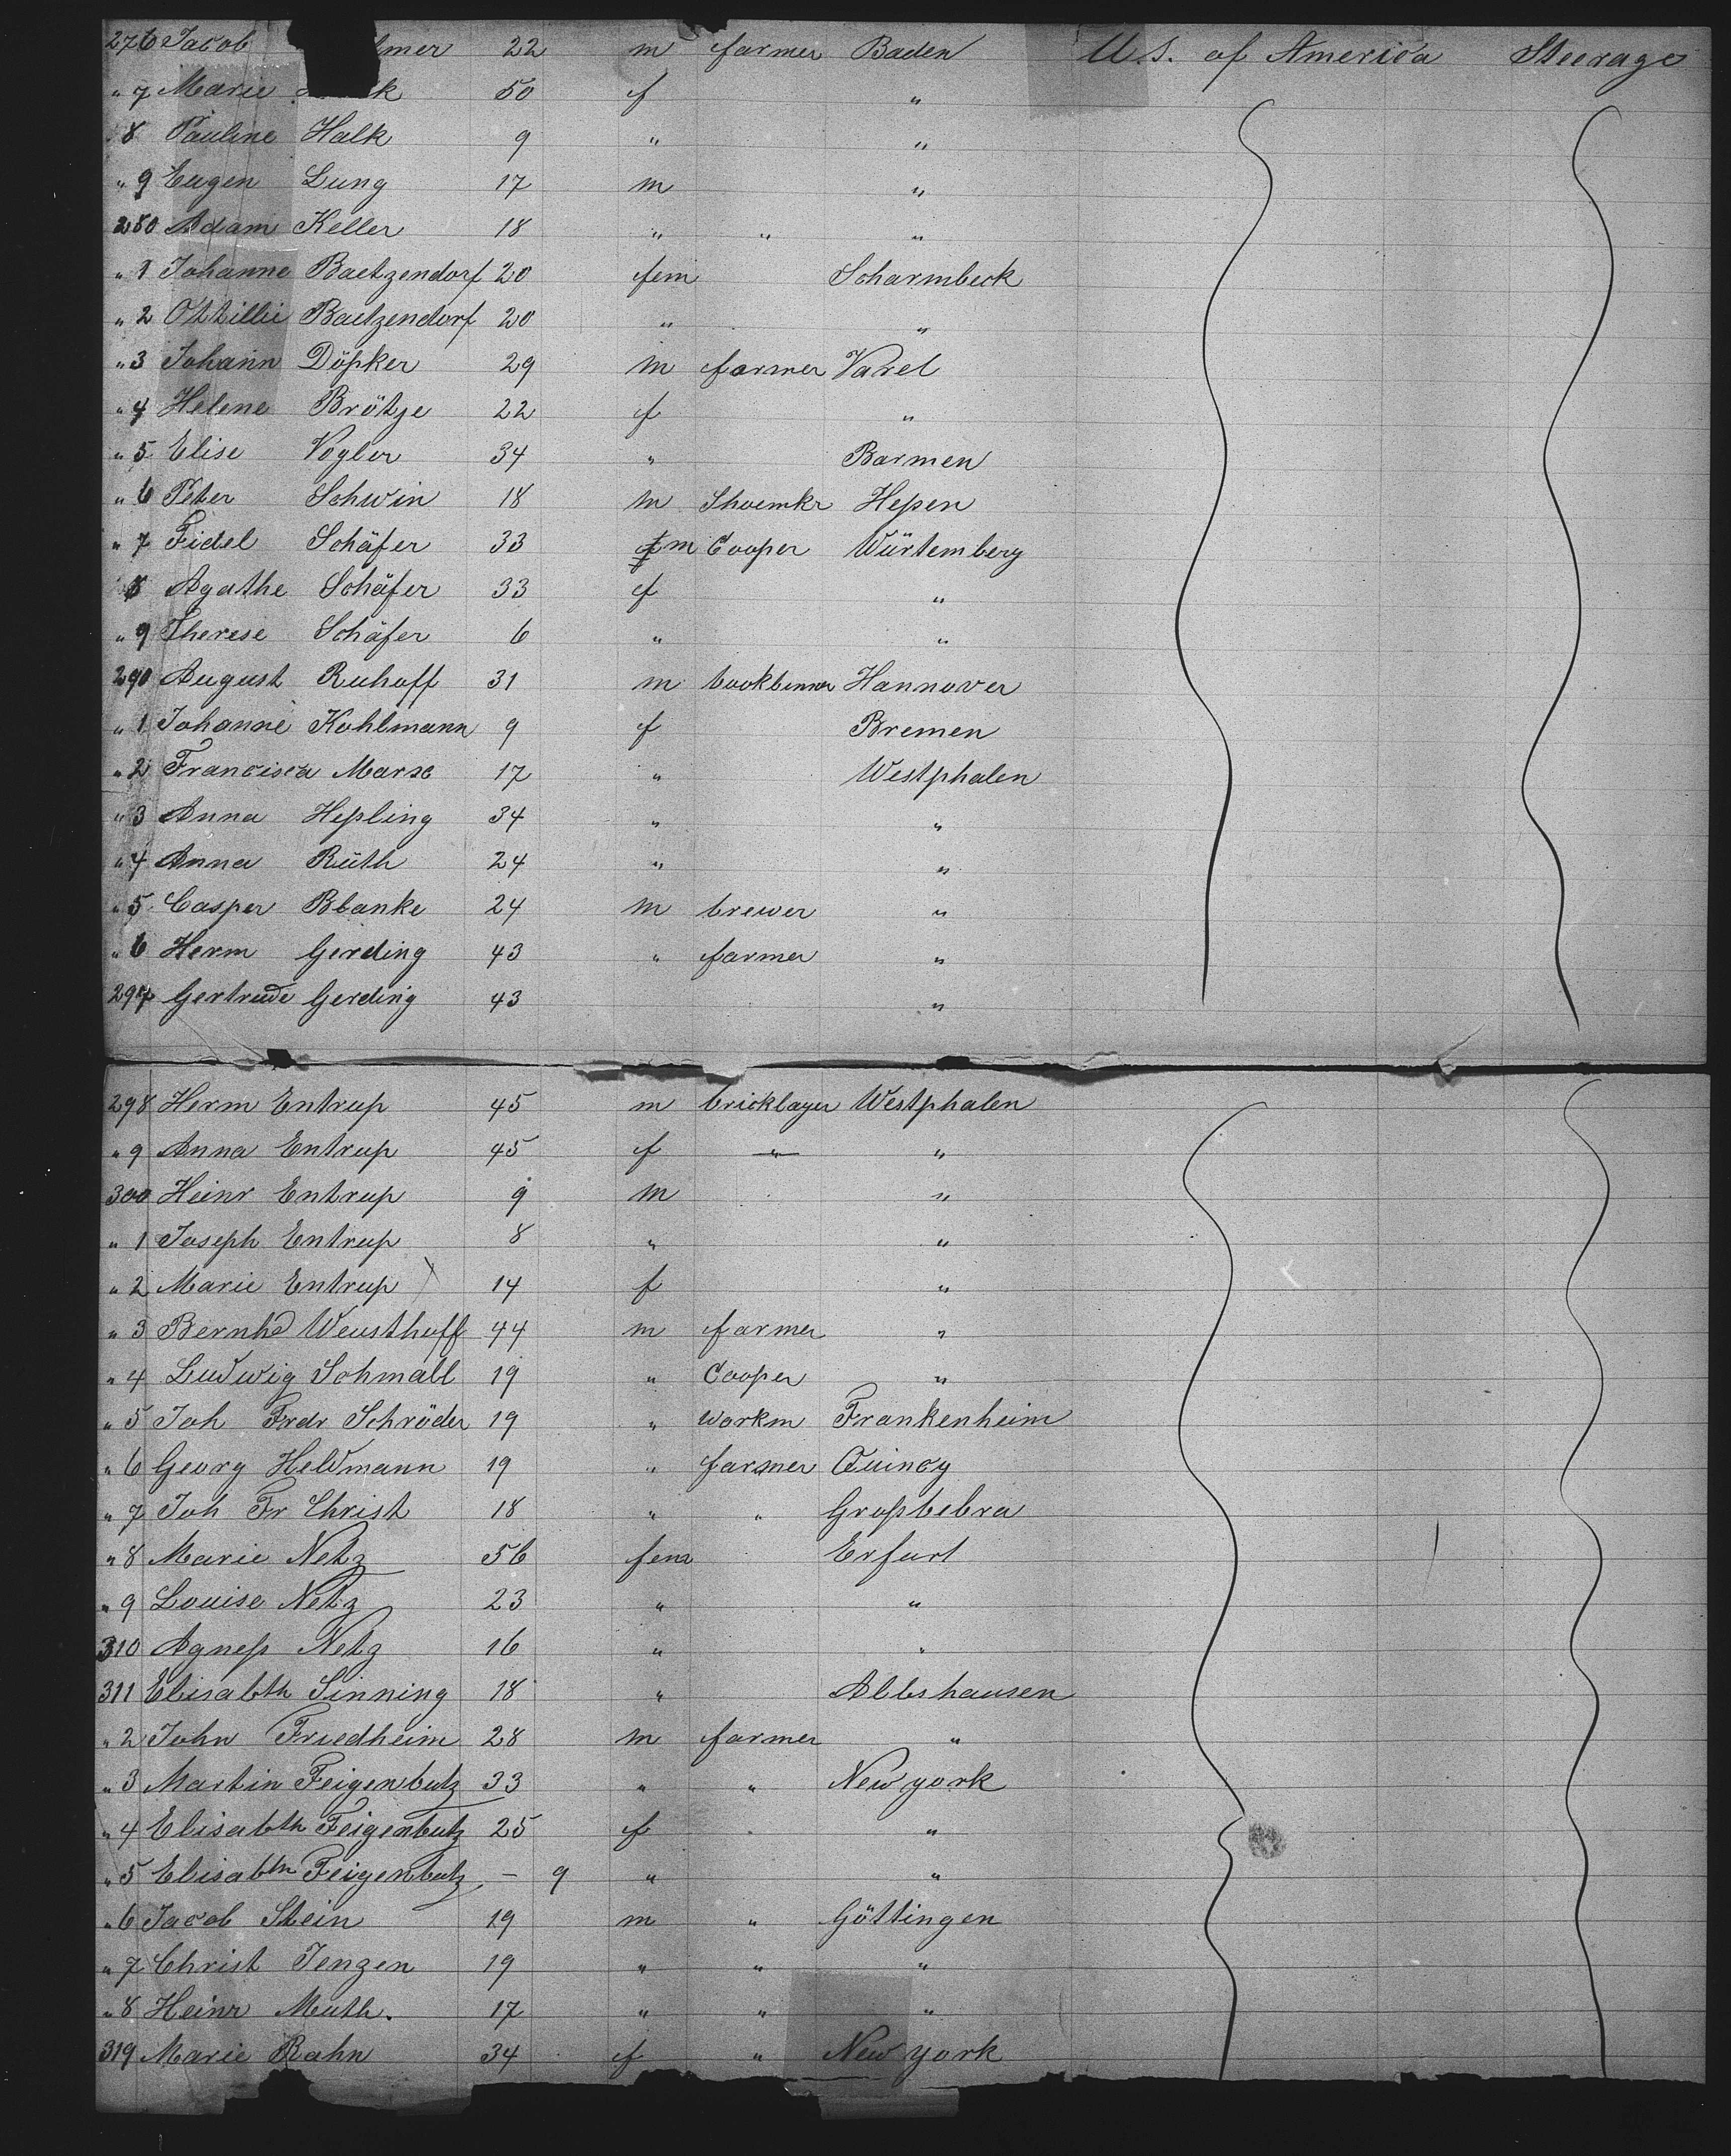 276 Jacob lmer 22 m farmer Baden U.S. of America Steerage
" 7 Marie k 50 f "
8 Pauline Halk 9 " "
" 9 Eugen Lung 17 m "
280 Adam Keller 18 " " "
" 1 Johanne Baetzendorf 20 fem Scharmbeck
" 2 Ottillie Baetzendorf 20 " "
" 3 Johann Döpker 29 m farmer Varel
" 4 Helene Brötje 22 f "
" 5 Elise Vogler 34 " Barmen
" 6 Peter Schwin 18 m Shoemkr Heßen
" 7 Fidel Schäfer 33 m Cooper Würtemberg
8 Agathe Schäfer 33 f "
" 9 Therese Schäfer 6 " "
290 August Ruhoff 31 m Hannover
" 1 Johanne Kohlmann 9 f Bremen
" 2 Francisca Marx 17 " Westphalen
" 3 Anna Heßling 34 " "
" 4 Anna Rüth 24 " "
" 5 Casper Blanke 24 m brewer "
" 6 Herm Gerding 43 " farmer "
297 Gertrude Gerding 43 "
298 Herm Entrup 45 m bricklayer Westphalen
" 9 Anna Entrup 45 f " "
300 Heinr Entrup 9 m "
" 1 Joseph Entrup 8 " "
" 2 Marie Entrup 14 f "
" 3 Bernhd Weusthoff 44 m farmer "
" 4 Ludwig Schmall 19 " Cooper "
" 5 Joh Frdr Schröder 19 " workm Frankenheim
" 6 Georg Heldmann 19 " farmer Quincy
" 7 Joh Fr Christ 18 " " Großbebra
" 8 Marie Netz 56 fem Erfurt
" 9 Louise Netz 23 " "
310 Agneß Netz 16 " "
311 Elisabth Sinning 18 " Albshausen
" 2 John Friedheim 28 m farmer "
" 3 Martin Feigenbutz 33 " " New york
" 4 Elisabth Feigenbutz 25 f "
" 5 Elisabth Feigenbutz - 9 " "
" 6 Jacob Stein 19 m " Göttingen
" 7 Christ Jenzen 19 " " "
" 8 Heinr Muth. 17 " " "
319 Marie Rahn 34 f " New york